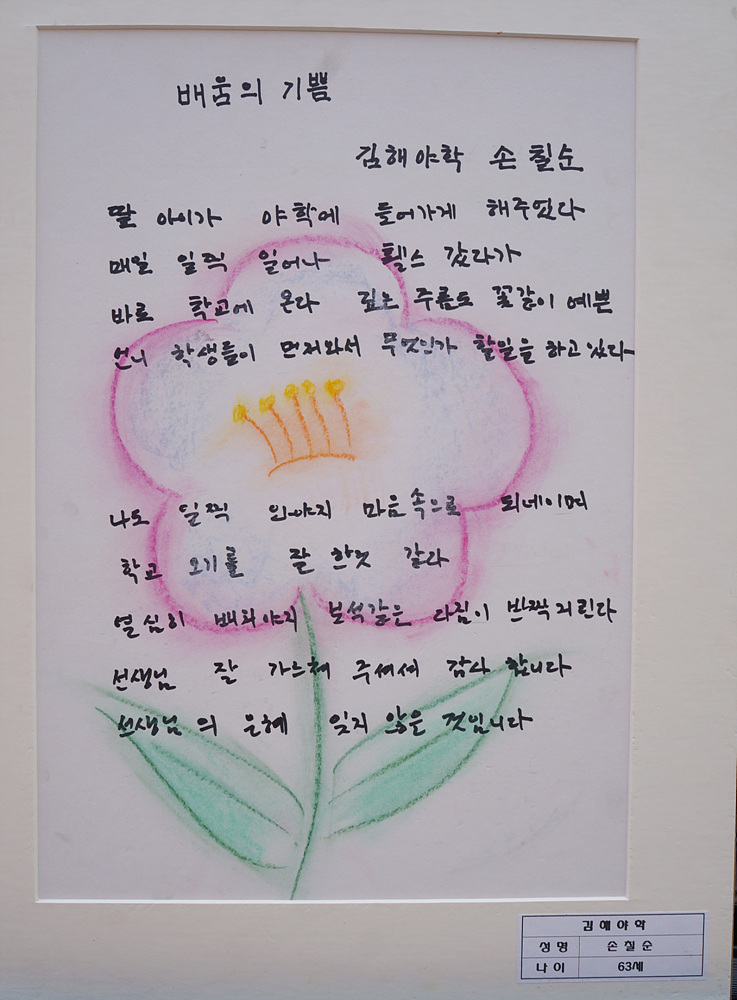 배움의 기쁨
김해야학 손칠순
딸 아이가 야학에 들어가게 해주었다
매일 일찍 일어나 헬스 갔다가
바로 학교에 온다 깊은 주름도 꽃같이 예쁜
언니 학생들이 먼저와서 무엇인가 할일을 하고있다
나도 일찍 와야지 마음속으로 되네이며
학교 오기를 잘 한것 같다
열심히 배워야지 보석같은 다짐이 반짝거린다
선생님 잘 가르쳐 주셔서 감사 합니다
선생님의 은혜 잊지 않을 것입니다
김해야학
성명 손칠순
나이 63세